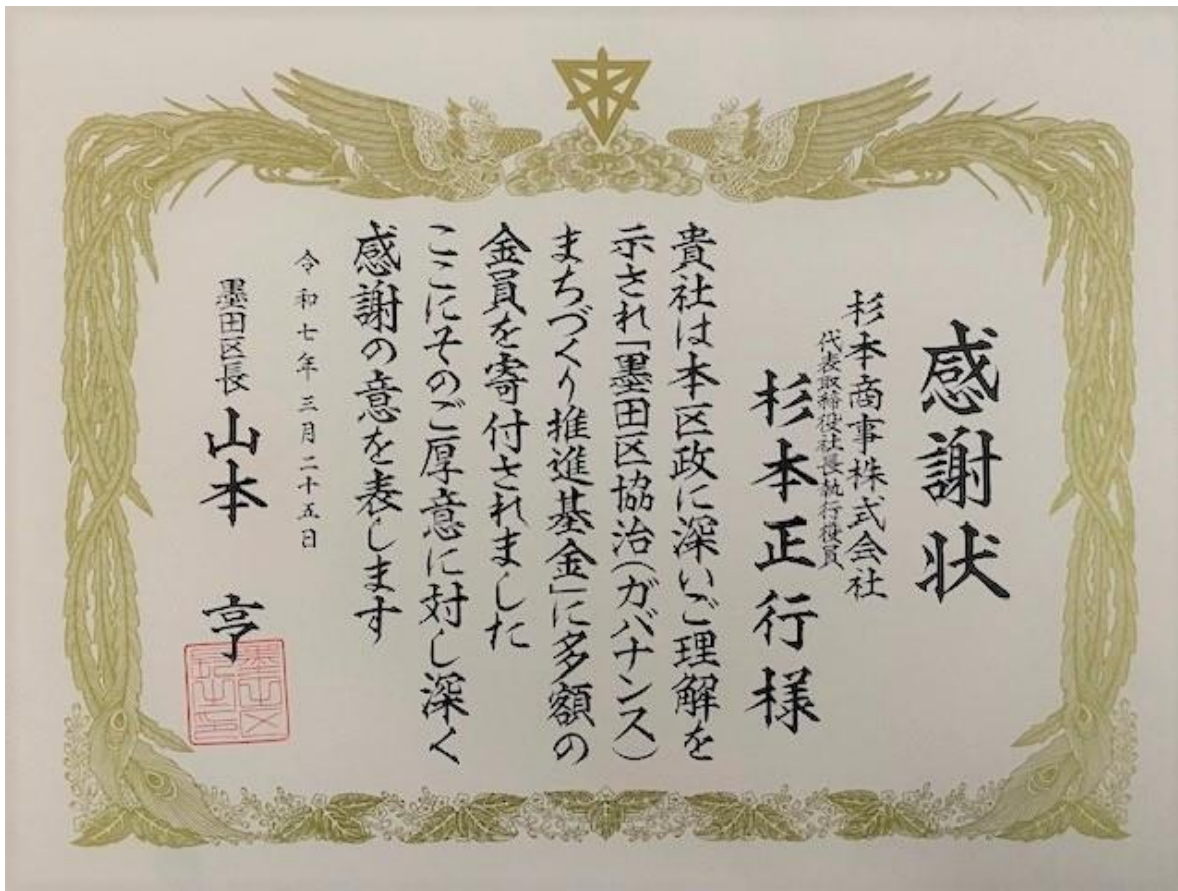 感謝状
杉本商事株式会社
代表取締役社長執行役員
杉本正行様
貴社は本区政に深いご理解を
示され「墨田区協治(ガバナンス)
まちづくり推進基金」に多額の
金員を寄付されました
ここにそのご厚意に対し深く
感謝の意を表します
令和七年三月二十五日
墨田区長 山本 亨